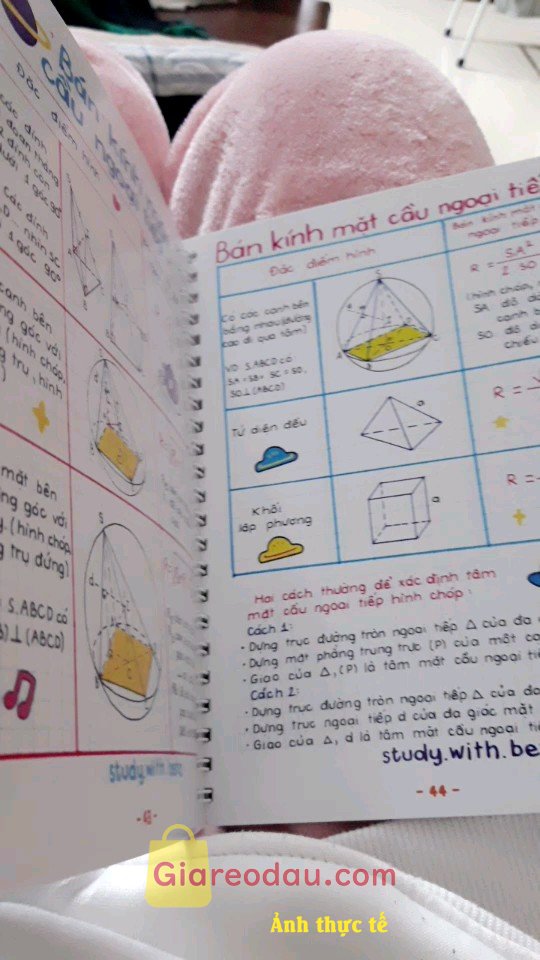 Bán kính
cầu ngoại
Đặc điểm hình
Các đỉnh
đoạn thẳng
2 đỉnh còn
dưới 1 góc 90°
Các đỉnh
nhìn SC
1 góc 90°
cạnh bên
góc với
(hình chóp,
trụ, hình
mặt bên
góc với
(hình chóp
trụ đứng)
S.ABCD có
⊥ (ABCD)
study.with.
- 43 -
Bán kính mặt cầu ngoại tiế
Đặc điểm hình
Bán kính mặt
ngoại tiếp
Có các cạnh bên
bằng nhau (đường
cao đi qua tâm)
VD S.ABCD có
SA = SB = SC = SD,
SO ⊥ (ABCD)
R = SA²
2. SO
(hình chóp,
SA độ dà
cạnh b
SO độ d
chiều
Tứ diện đều
a
R =
Khối
lập phương
a
R =
Hai cách thường để xác định tâm
mặt cầu ngoại tiếp hình chóp:
Cách 1:
• Dựng trục đường tròn ngoại tiếp Δ của đa
• Dựng mặt phẳng trung trực (P) của một cạ
• Giao của Δ, (P) là tâm mặt cầu ngoại tiế
Cách 2:
• Dựng trục đường tròn ngoại tiếp Δ của đa
• Dựng trục ngoại tiếp d của đa giác mặt
• Giao của Δ, d là tâm mặt cầu ngoại tiế
study.with.be
- 44 -
Giareodau.com
Ảnh thực tế